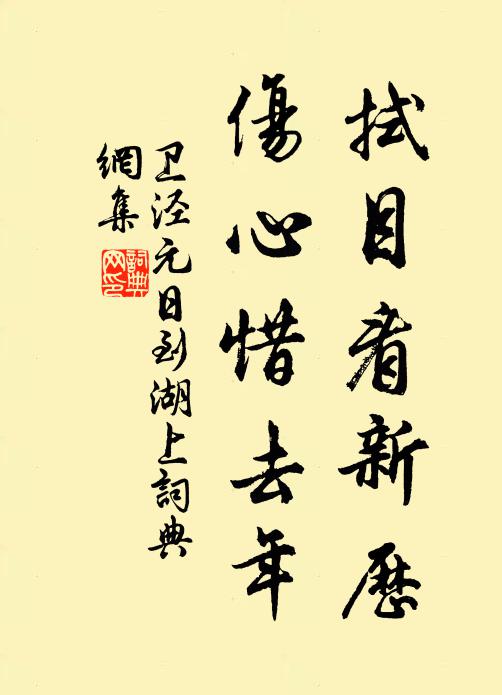 拭目看新歷
傷心惜去年
卫泾元日到湖上詞典
網集
詞典网印